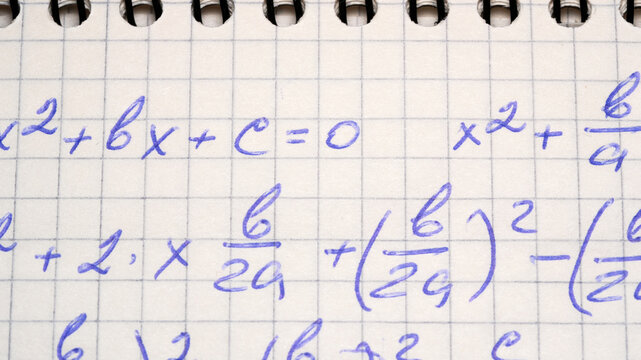 x² + bx + c = 0 x² + b/a
² + 2 · x b/2a + (b/2a)² − (b/2a